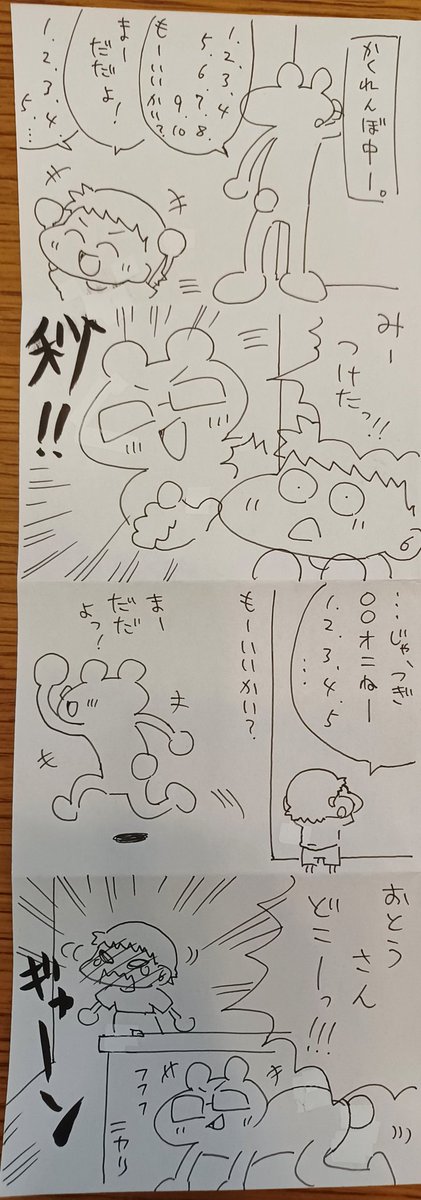 かくれんぼ中ー。
1、2、3、4
5、6、7、8、
9、10
もーいいかい?
まー
だだよ!
1、2、3、4、
5、…
みー
つけたっ!!
秒!!
…じゃ、つぎ
〇〇オニねー
1、2、3、4、5
…
もーいいかい?
まー
だだ
よっ!
おとう
さん
どこーっ!!!
ギャーン
フフフ
ニヤリ